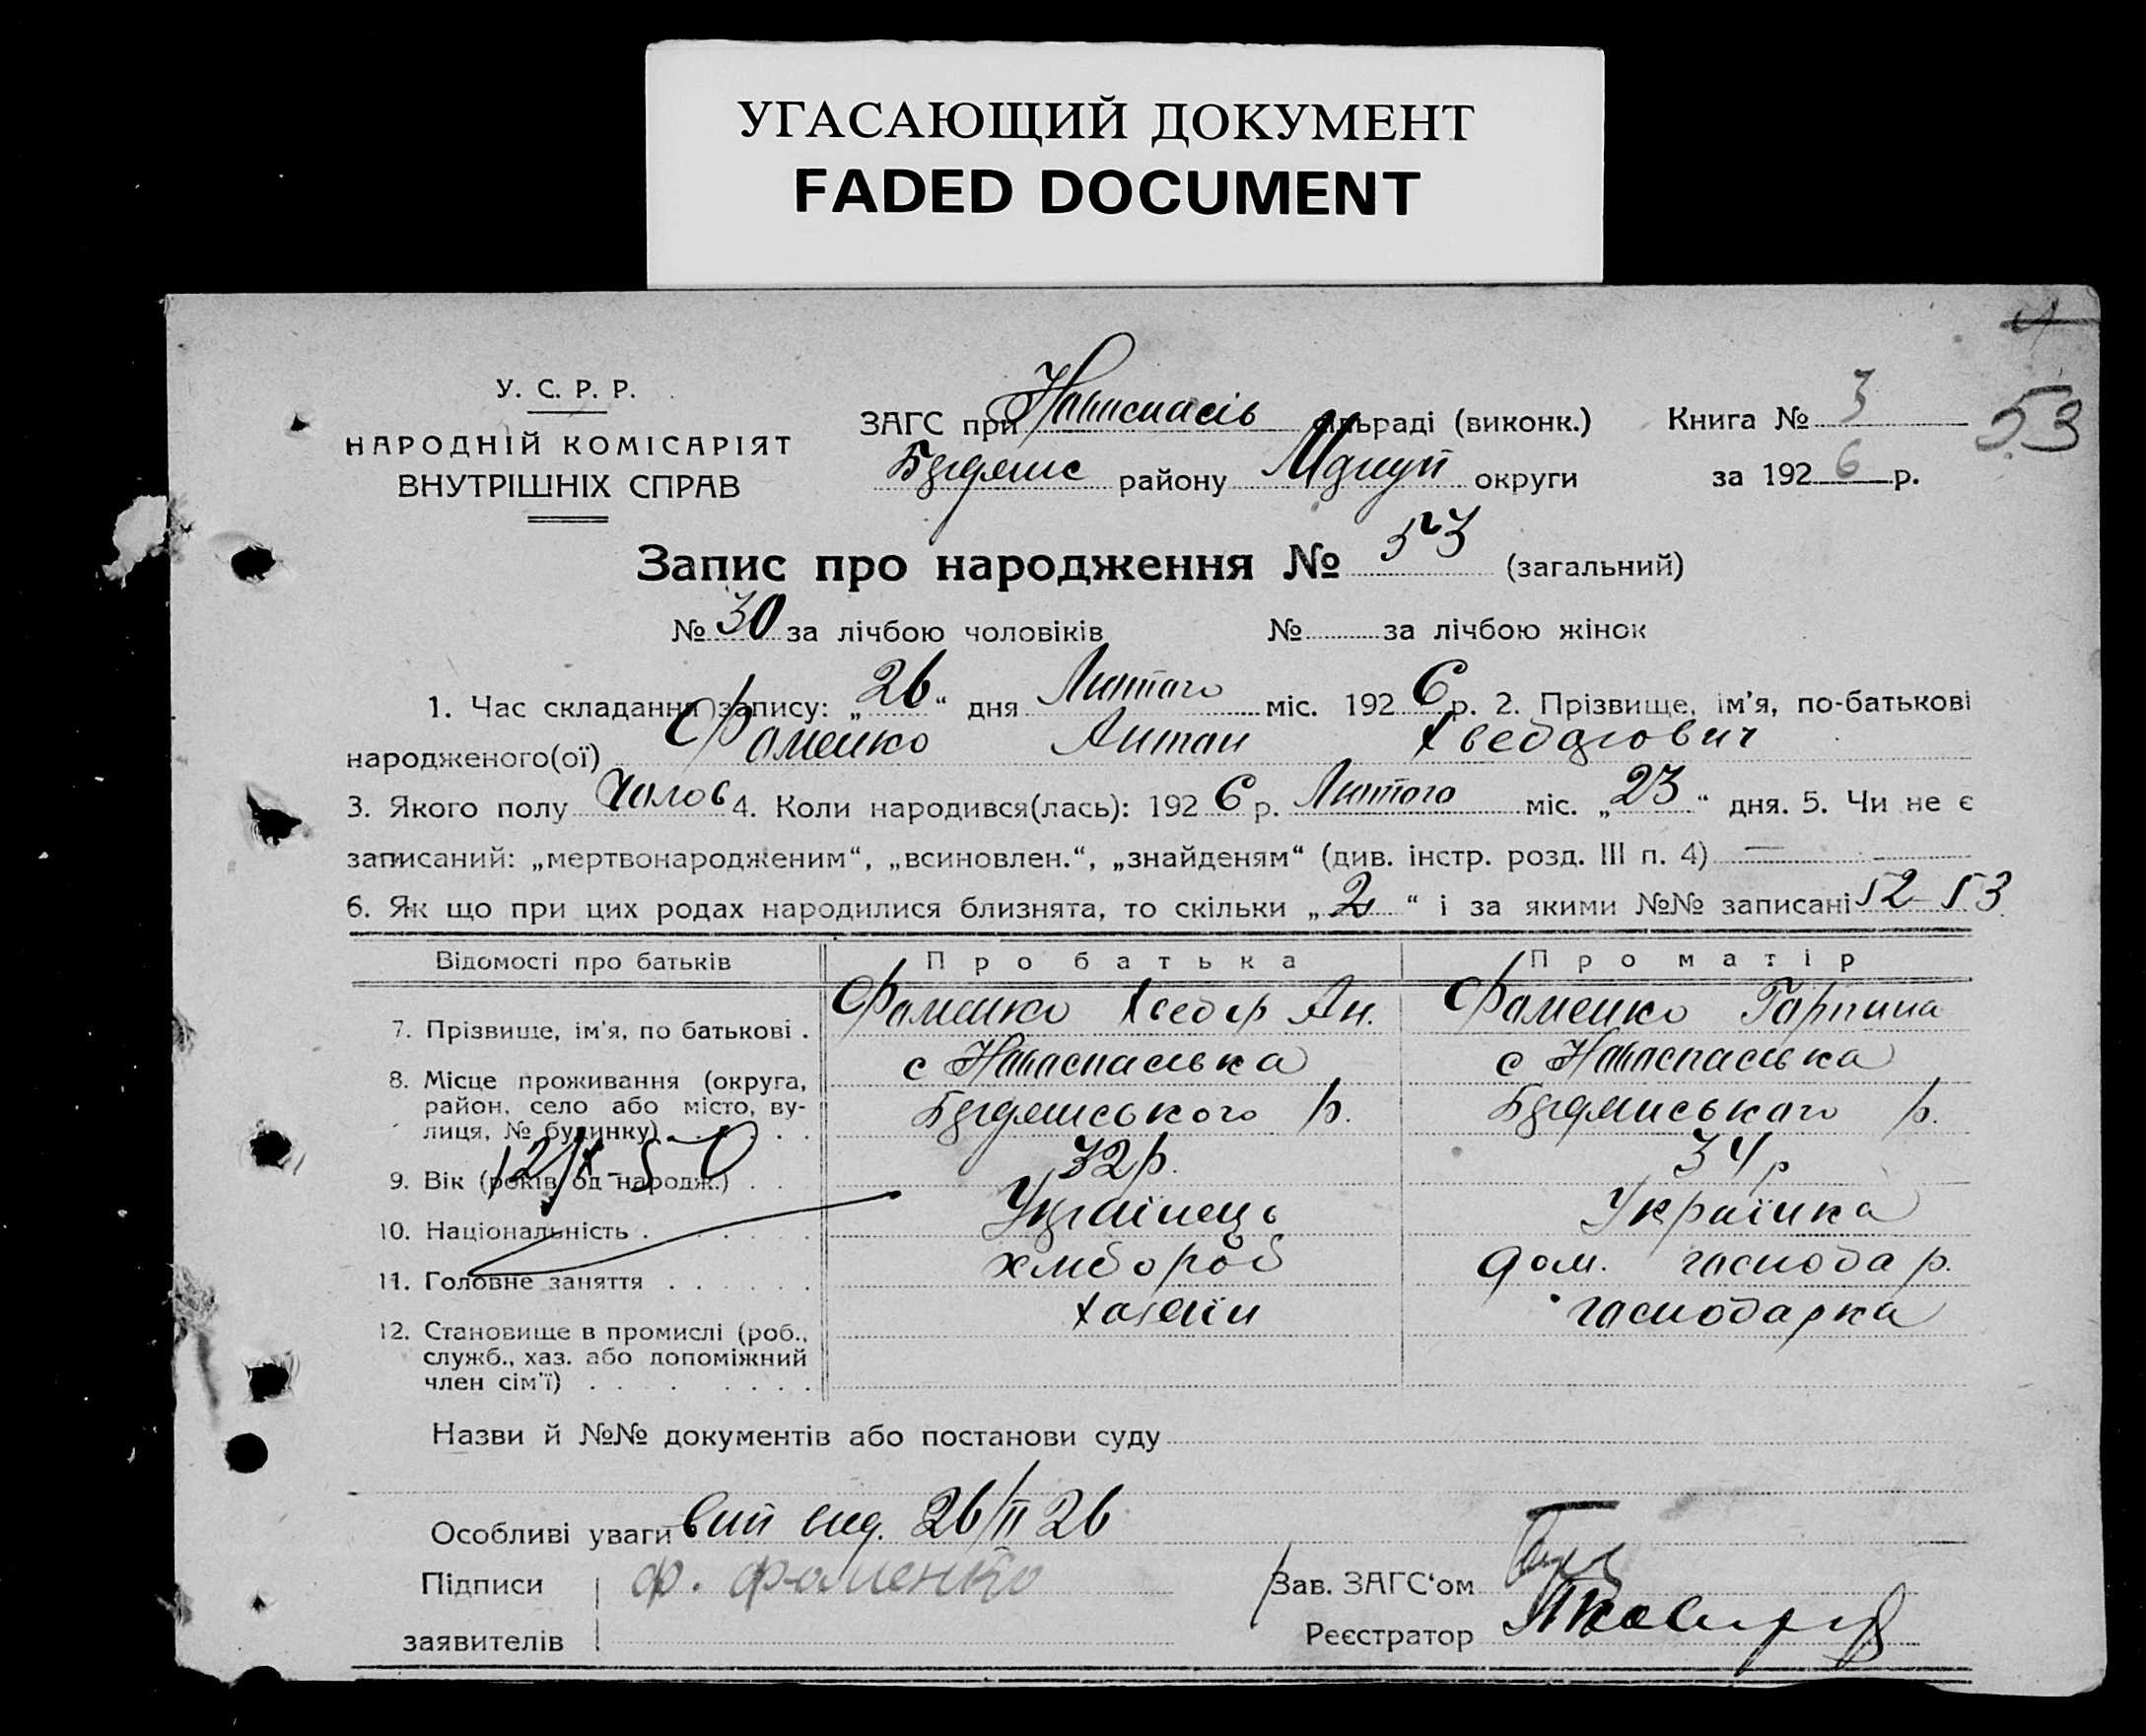 УГАСАЮЩИЙ ДОКУМЕНТ
FADED DOCUMENT
53
У. С. Р. Р.
НАРОДНІЙ КОМІСАРІЯТ
ВНУТРІШНІХ СПРАВ
ЗАГС при Новоспасів сільраді (виконк.) Книга № 3
району округи за 1926 р.
Запис про народження № 53 (загальний)
№ 30 за лічбою чоловіків № за лічбою жінок
1. Час складання запису: „26“ дня Лютого міс. 1926 р. 2. Прізвище, ім'я, по-батькові
народженого(ої) Фоменко Антон Хведорович
3. Якого полу Чолов 4. Коли народився(лась): 1926 р. Лютого міс. „23“ дня. 5. Чи не є
записаний: „мертвонародженим“, „всиновлен.“, „знайденям“ (див. інстр. розд. III п. 4) —
6. Як що при цих родах народилися близнята, то скільки „2“ і за якими №№ записані 52–53
Відомості про батьків Про батька Про матір
7. Прізвище, ім'я, по батькові . Фоменко Хведір Ан. Фоменко Гарпина
8. Місце проживання (округа, с Новоспаська с Новоспаська
район, село або місто, ву-
лиця, № будинку) . . . . р. р.
9. Вік (років од народж.) . . 32 р. 34 р
10. Національність . . . . . Українець Українка
11. Головне заняття . . . . . . хлібороб дом. господар.
12. Становище в промислі (роб., хазяїн господарка
служб., хаз. або допоміжний
член сім'ї) . . . . . . . .
Назви й №№ документів або постанови суду
Особливі уваги вид. 26/II 26
Підписи ф. фоменко Зав. ЗАГС'ом
заявителів Реєстратор